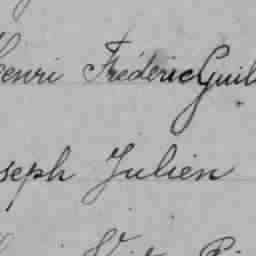 Henri Fréderic Guil
seph Julien